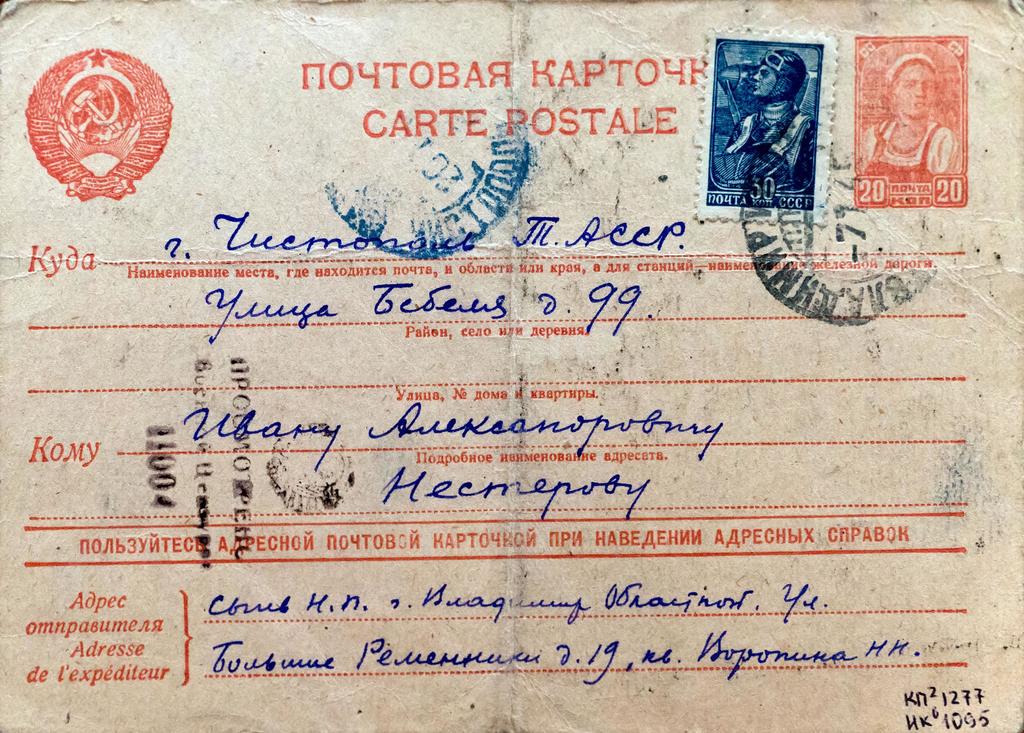 ПОЧТОВАЯ КАРТОЧК
CARTE POSTALE
30
ПОЧТА КОП. СССР
20 ПОЧТА 20
КОП
ЧИСТОПОЛЬ
ВЛАДИМИР
-7 7 45
Куда г. Чистополь Т. АССР.
Наименование места, где находится почта, и области или края, а для станций, наименование железной дороги.
Улица Бебеля д. 99.
Район, село или деревня.
Улица, № дома и квартиры.
Кому Ивану Александровичу
Подробное наименование адресата.
Нестерову
ПРОСМОТРЕНО
Военной Цензурой
11004
ПОЛЬЗУЙТЕСЬ АДРЕСНОЙ ПОЧТОВОЙ КАРТОЧКОЙ ПРИ НАВЕДЕНИИ АДРЕСНЫХ СПРАВОК
Адрес
отправителя
Adresse
de l'expéditeur
Н.П. г. Владимир Областной. Ул.
Большие Ременники д. 19, кв. Воронина Н Н.
КП² 1277
НК⁶ 1095